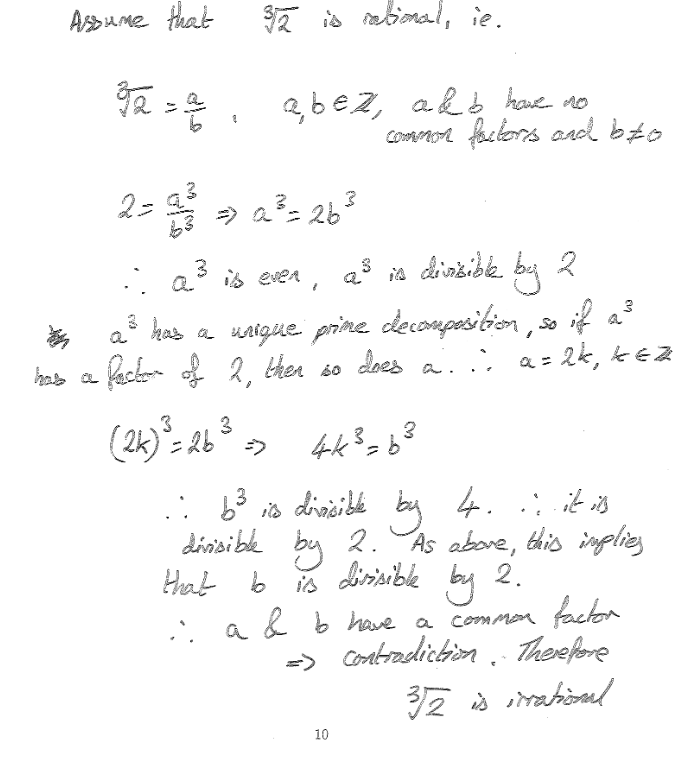 Assume that ∛2 is rational, ie.
∛2 = a/b, a,b ∈ ℤ, a & b have no
common factors and b≠0
2 = a³/b³ ⇒ a³ = 2b³
∴ a³ is even, a³ is divisible by 2
a³ has a unique prime decomposition, so if a³
has a factor of 2, then so does a. ∴ a = 2k, k ∈ ℤ
(2k)³ = 2b³ ⇒ 4k³ = b³
∴ b³ is divisible by 4. ∴ it is
divisible by 2. As above, this implies
that b is divisible by 2.
∴ a & b have a common factor
=> contradiction. Therefore
∛2 is irrational
10